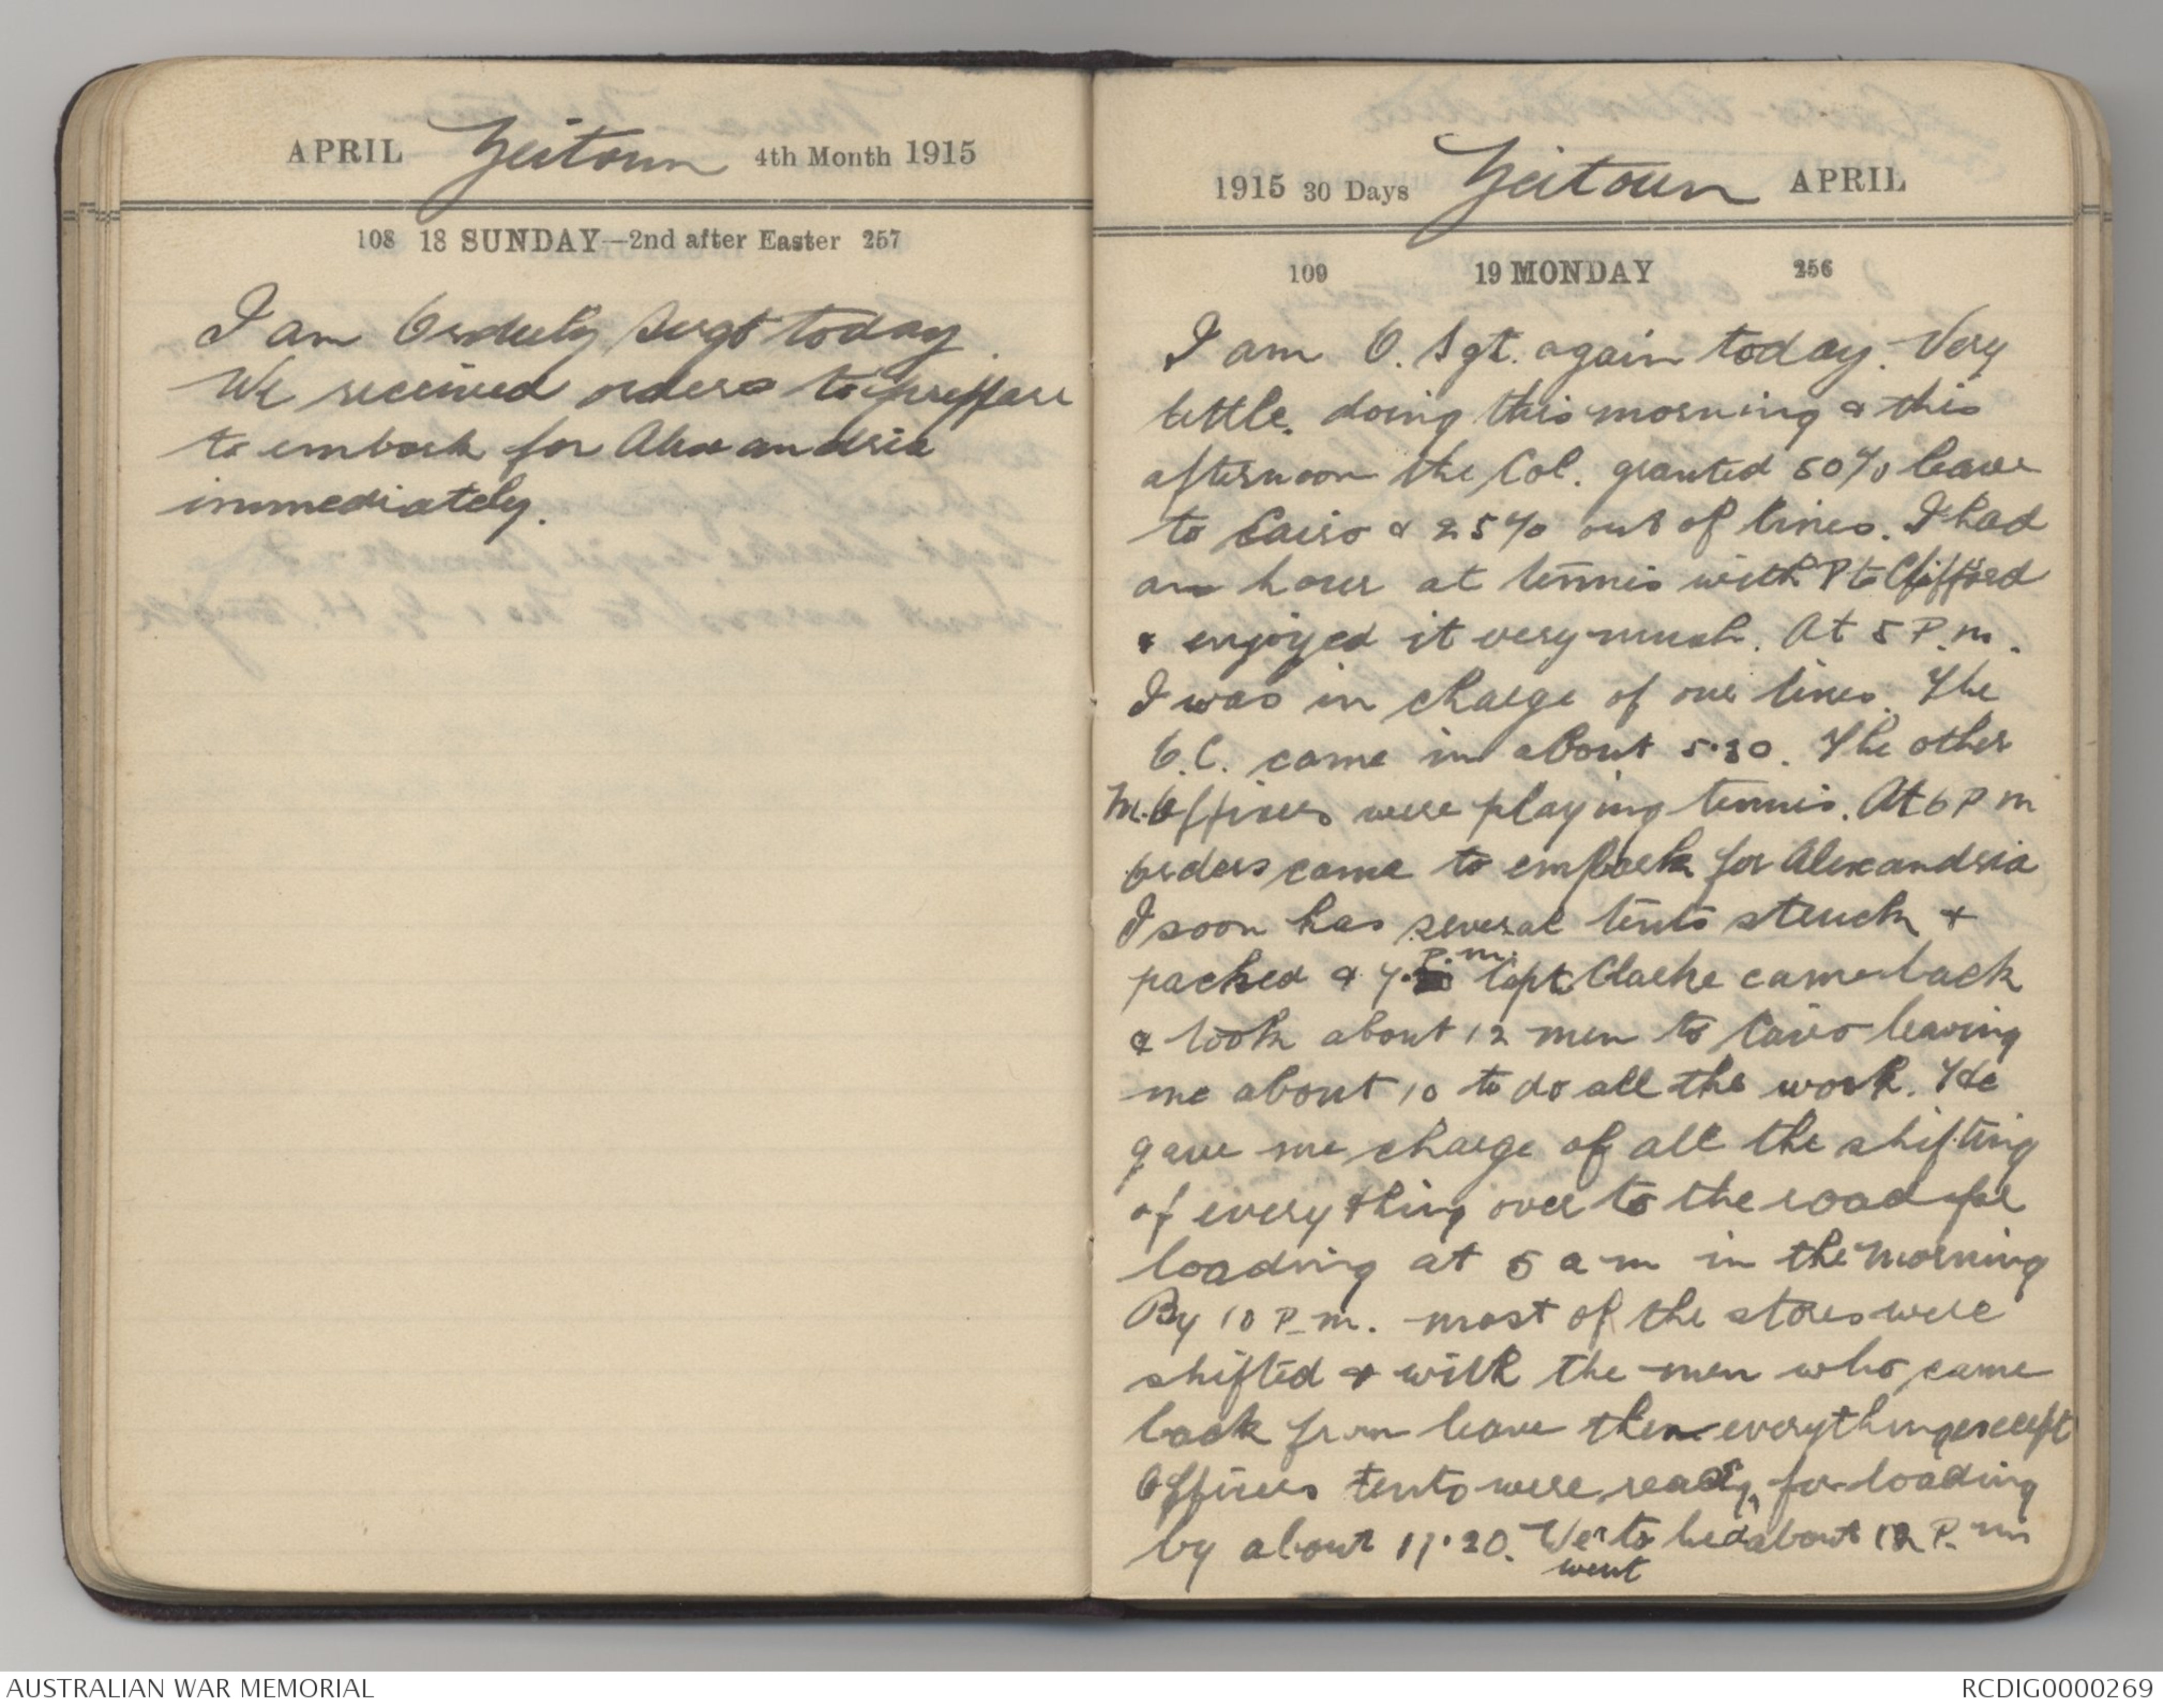 APRIL Zeitoun 4th Month 1915
108 18 SUNDAY—2nd after Easter 257
I am Orderly Sergt today.
We received orders to preppare
to embark for Alexandria
immediately.
1915 30 Days Zeitoun APRIL
109 19 MONDAY 256
I am O. Sgt. again today. Very
little doing this morning & this
afternoon the Col. granted 50% leave
to Cairo & 25% out of lines. I had
an hour at tennis with Pte Clifford
& enjoyed it very much. At 5 P.m.
I was in charge of our lines. The
O.C. came in about 5.30. The other
M. Officers were playing tennis. At 6 P m
orders came to embark for Alexandria
I soon has several tents struck &
packed & 7. P.m. Capt Clarke came back
& took about 12 men to Cairo leaving
me about 10 to do all the work. He
gave me charge of all the shifting
of everything over to the road for
loading at 5 a m in the morning
By 10 P.m. most of the stores were
shifted & with the men who came
back from leave then everything except
Officers tents were ready for loading
by about 11.20. We to bed about 12 P. m
went
AUSTRALIAN WAR MEMORIAL
RCDIG0000269